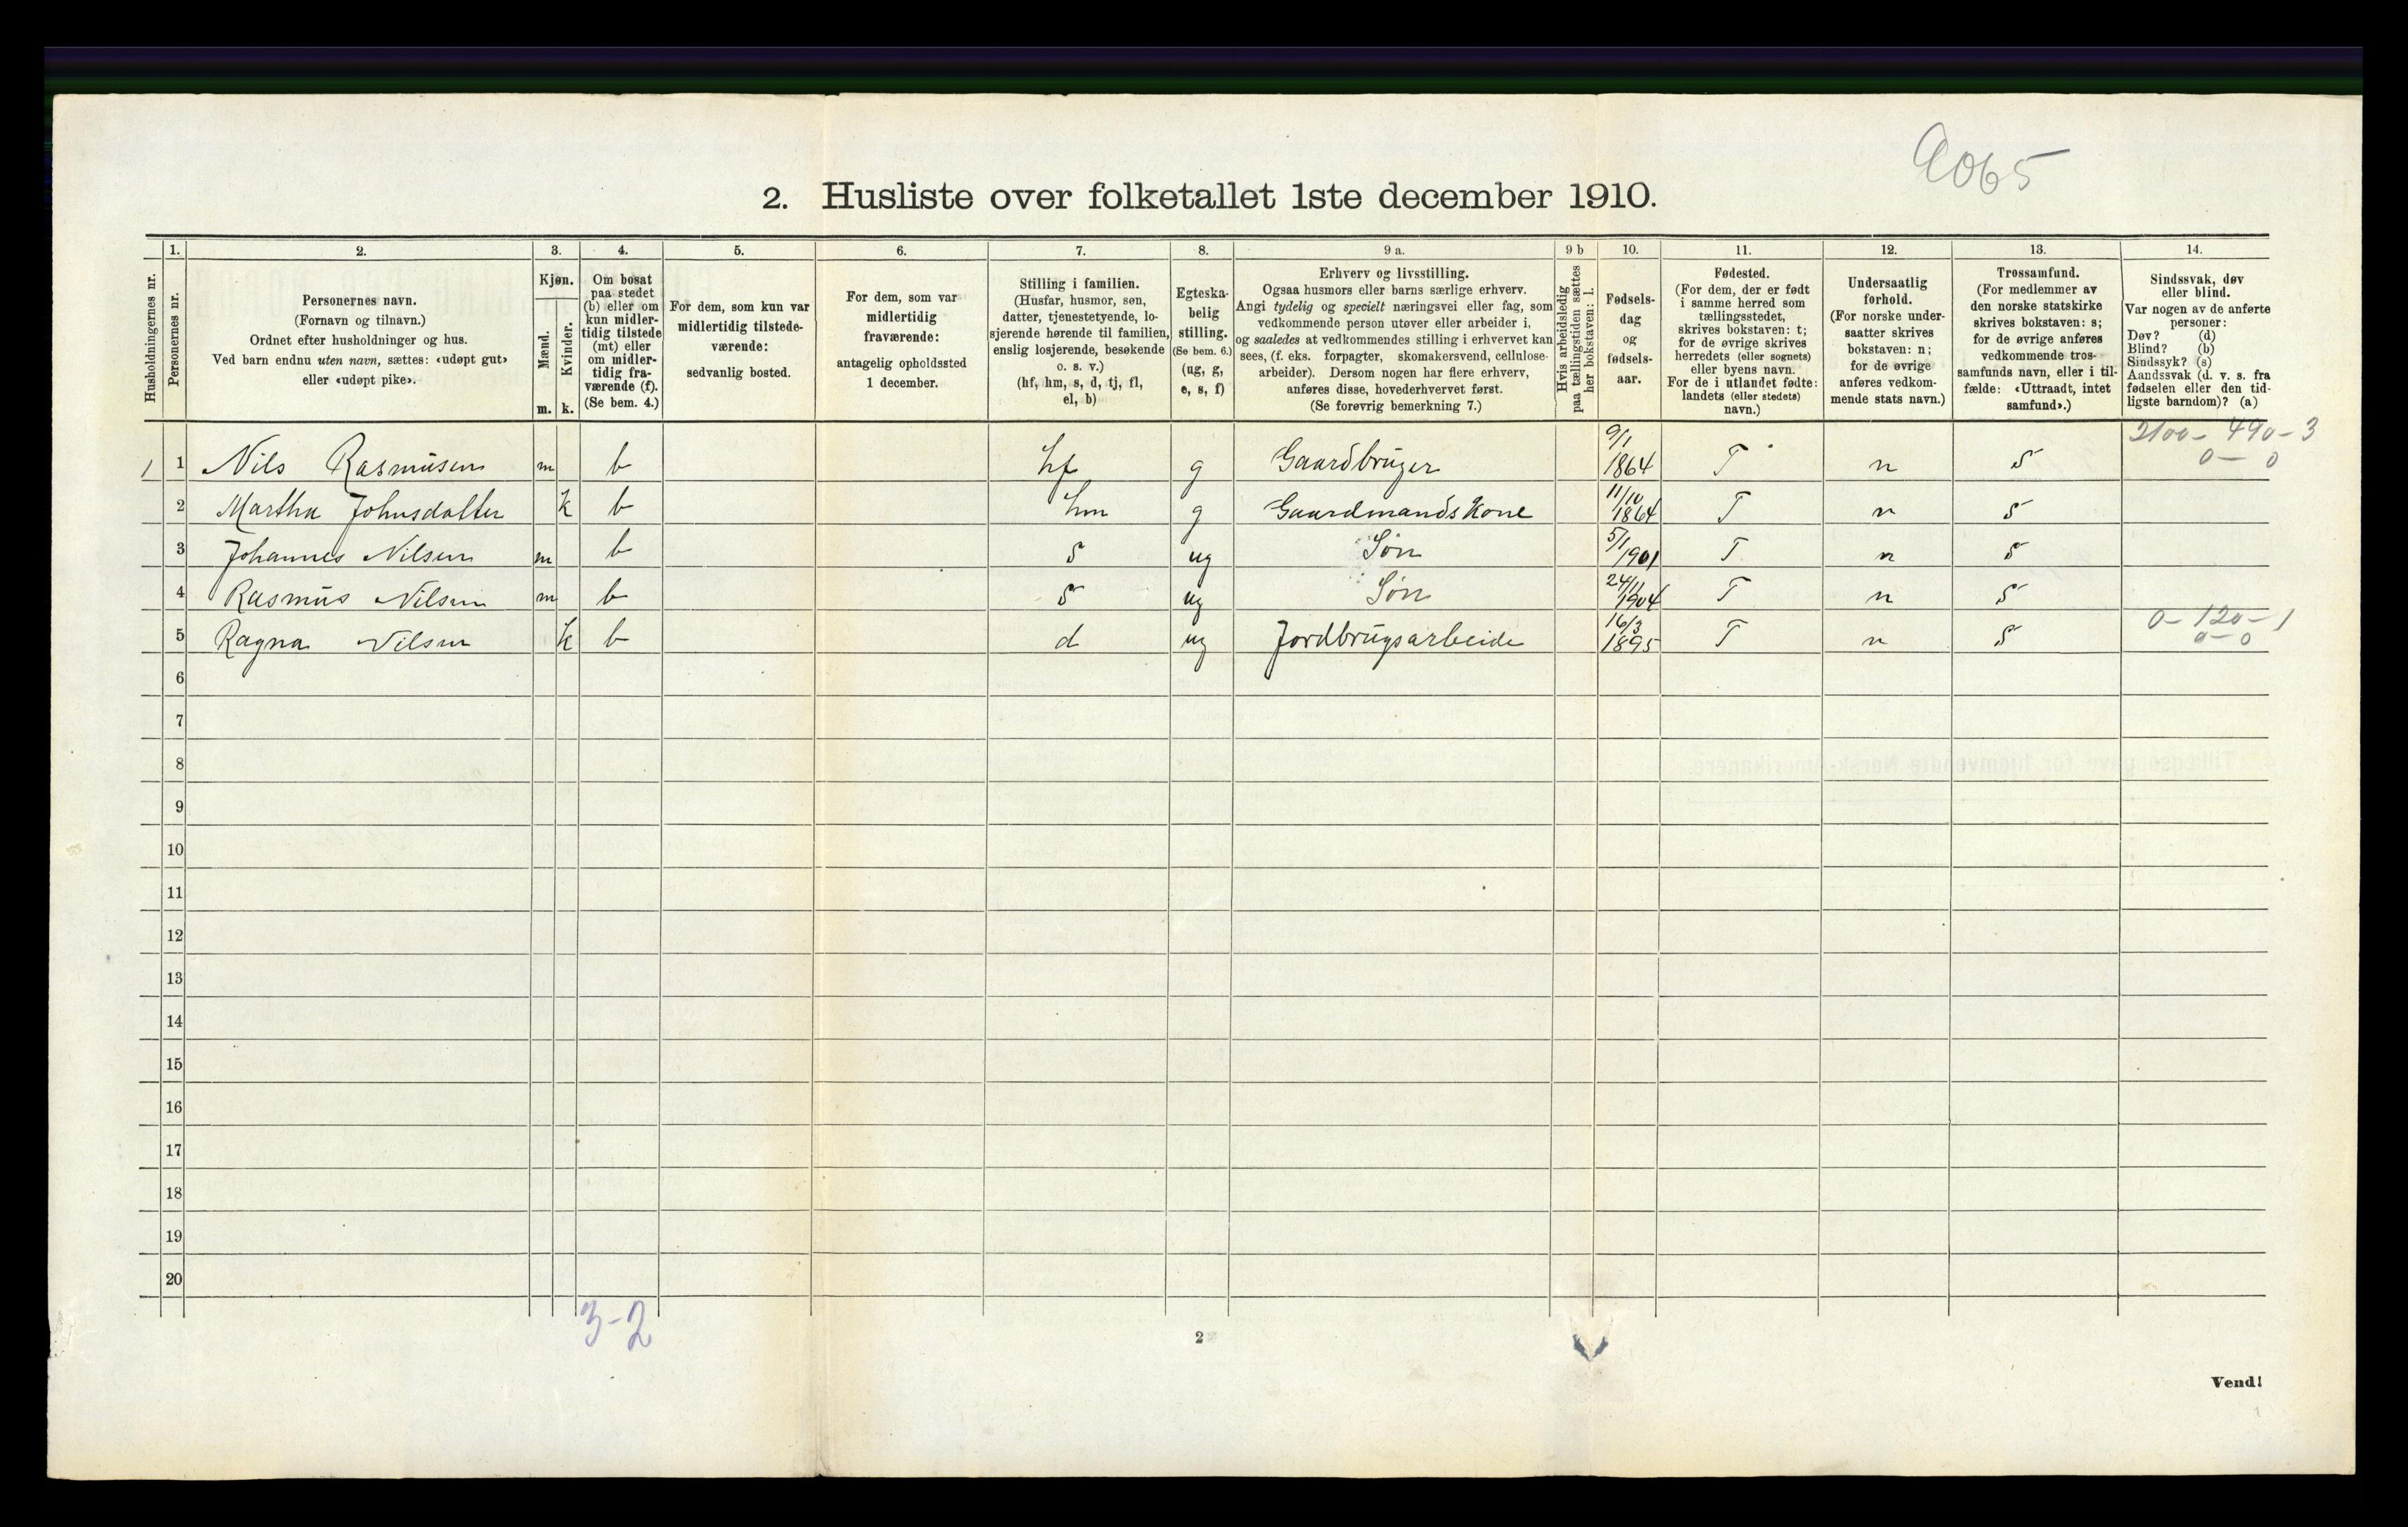 9065
2. Husliste over folketallet 1ste december 1910.
Husholdningernes nr.
1.
Personernes nr.
2.
Personernes navn.
(Fornavn og tilnavn.)
Ordnet efter husholdninger og hus.
Ved barn endnu uten navn, sættes: «udøpt gut»
eller «udøpt pike».
3.
Kjøn.
Mænd.
m.
Kvinder.
k.
4.
Om bosat
paa stedet
(b) eller om
kun midler-
tidig tilstede
(mt) eller
om midler-
tidig fra-
værende (f).
(Se bem. 4.)
5.
For dem, som kun var
midlertidig tilstede-
værende:
sedvanlig bosted.
6.
For dem, som var
midlertidig
fraværende:
antagelig opholdssted
1 december.
7.
Stilling i familien.
(Husfar, husmor, søn,
datter, tjenestetyende, lo-
sjerende hørende til familien,
enslig losjerende, besøkende
o. s. v.)
(hf, hm, s, d, tj, fl,
el, b)
8.
Egteska-
belig
stilling.
(Se bem. 6.)
(ug, g,
e, s, f)
9 a.
Erhverv og livsstilling.
Ogsaa husmors eller barns særlige erhverv.
Angi tydelig og specielt næringsvei eller fag, som
vedkommende person utøver eller arbeider i,
og saaledes at vedkommendes stilling i erhvervet kan
sees, (f. eks. forpagter, skomakersvend, cellulose-
arbeider). Dersom nogen har flere erhverv,
anføres disse, hovederhvervet først.
(Se forøvrig bemerkning 7.)
9 b
Hvis arbeidsledig
paa tællingstiden sættes
her bokstaven: l.
10.
Fødsels-
dag
og
fødsels-
aar.
11.
Fødested.
(For dem, der er født
i samme herred som
tællingsstedet,
skrives bokstaven: t;
for de øvrige skrives
herredets (eller sognets)
eller byens navn.
For de i utlandet fødte:
landets (eller stedets)
navn.)
12.
Undersaatlig
forhold.
(For norske under-
saatter skrives
bokstaven: n;
for de øvrige
anføres vedkom-
mende stats navn.)
13.
Trossamfund.
(For medlemmer av
den norske statskirke
skrives bokstaven: s;
for de øvrige anføres
vedkommende tros-
samfunds navn, eller i til-
fælde: «Uttraadt, intet
samfund».)
14.
Sindssvak, døv
eller blind.
Var nogen av de anførte
personer:
Døv? (d)
Blind? (b)
Sindssyk? (s)
Aandssvak (d. v. s. fra
fødselen eller den tid-
ligste barndom)? (a)
1 1 Nils Rasmusen m b hf g Gaardbruger 9/1 1864 T n s 2100 - 490 - 3
0 - 0
2 Martha Johnsdatter k b hm g Gaardmands Kone 11/10 1864 T n s
3 Johannes Nilsen m b s ug Søn 5/1 1901 T n s
4 Rasmus Nilsen m b s ug Søn 24/11 1904 T n s
5 Ragna Nilsen k b d ug Jordbrugsarbeide 16/3 1895 T n s 0 - 120 - 1
0 - 0
6
7
8
9
10
11
12
13
14
15
16
17
18
19
20
3-2
2
Vend!